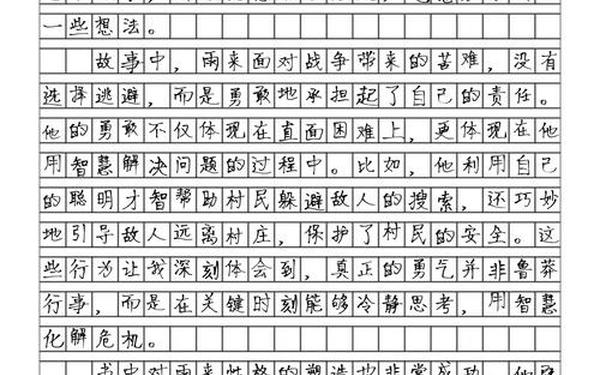 一些想法。
故事中，雨来面对战争带来的苦难，没有
选择逃避，而是勇敢地承担起了自己的责任。
他的勇敢不仅体现在直面困难上，更体现在他
用智慧解决问题的过程中。比如，他利用自己
的聪明才智帮助村民躲避敌人的搜索，还巧妙
地引导敌人远离村庄，保护了村民的安全。这
些行为让我深刻体会到，真正的勇气并非鲁莽
行事，而是在关键时刻能够冷静思考，用智慧
化解危机。
书中对雨来性格的塑造也非常成功。他